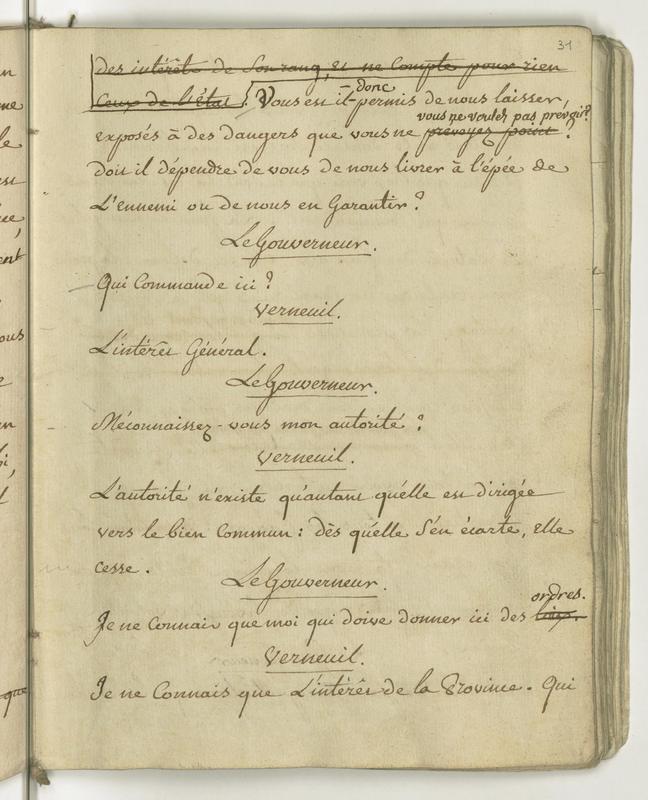 31
des intérêts de Son rang, et ne Compte pour rien
Ceux de l'État. Vous est il donc permis de nous laisser,
vous ne voulez pas prévoir?
exposés à des dangers que vous ne prévoyez point ?
doit il dépendre de vous de nous livrer à l'épée de
L'ennemi ou de nous en Garantir ?
Le Gouverneur.
Qui Commande ici ?
Verneuil.
L'intérêt Général.
Le Gouverneur.
Méconnaissez-vous mon autorité ?
Verneuil.
L'autorité n'existe qu'autant qu'elle est dirigée
vers le bien Commun : dès qu'elle s'en écarte, Elle
cesse.
Le Gouverneur.
ordres.
Je ne Connais que moi qui doive donner ici des
Verneuil.
Je ne Connais que L'intérêt de la Province. Qui